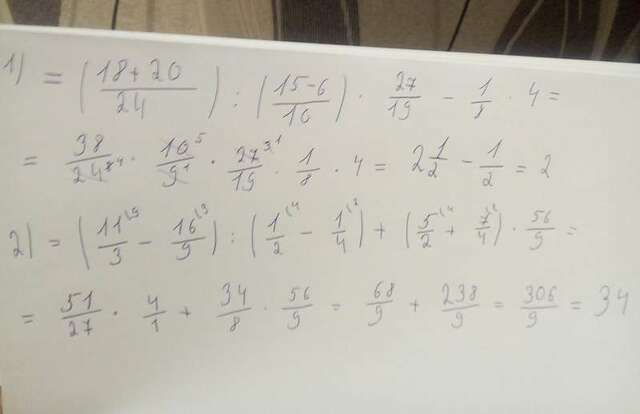 1) = (18+20/24) : (15-6/10) · 27/19 - 1/8 · 4 =
= 38/24 8 4 · 10 5/9 1 · 27 3 1/19 · 1/8 · 4 = 2 1/2 - 1/2 = 2
2) = (11\9/3 - 16\3/9) : (1\4/2 - 1\2/4) + (5\4/2 + 7\2/4) · 56/9 =
= 51/27 · 4/1 + 34/8 · 56/9 = 68/9 + 238/9 = 306/9 = 34